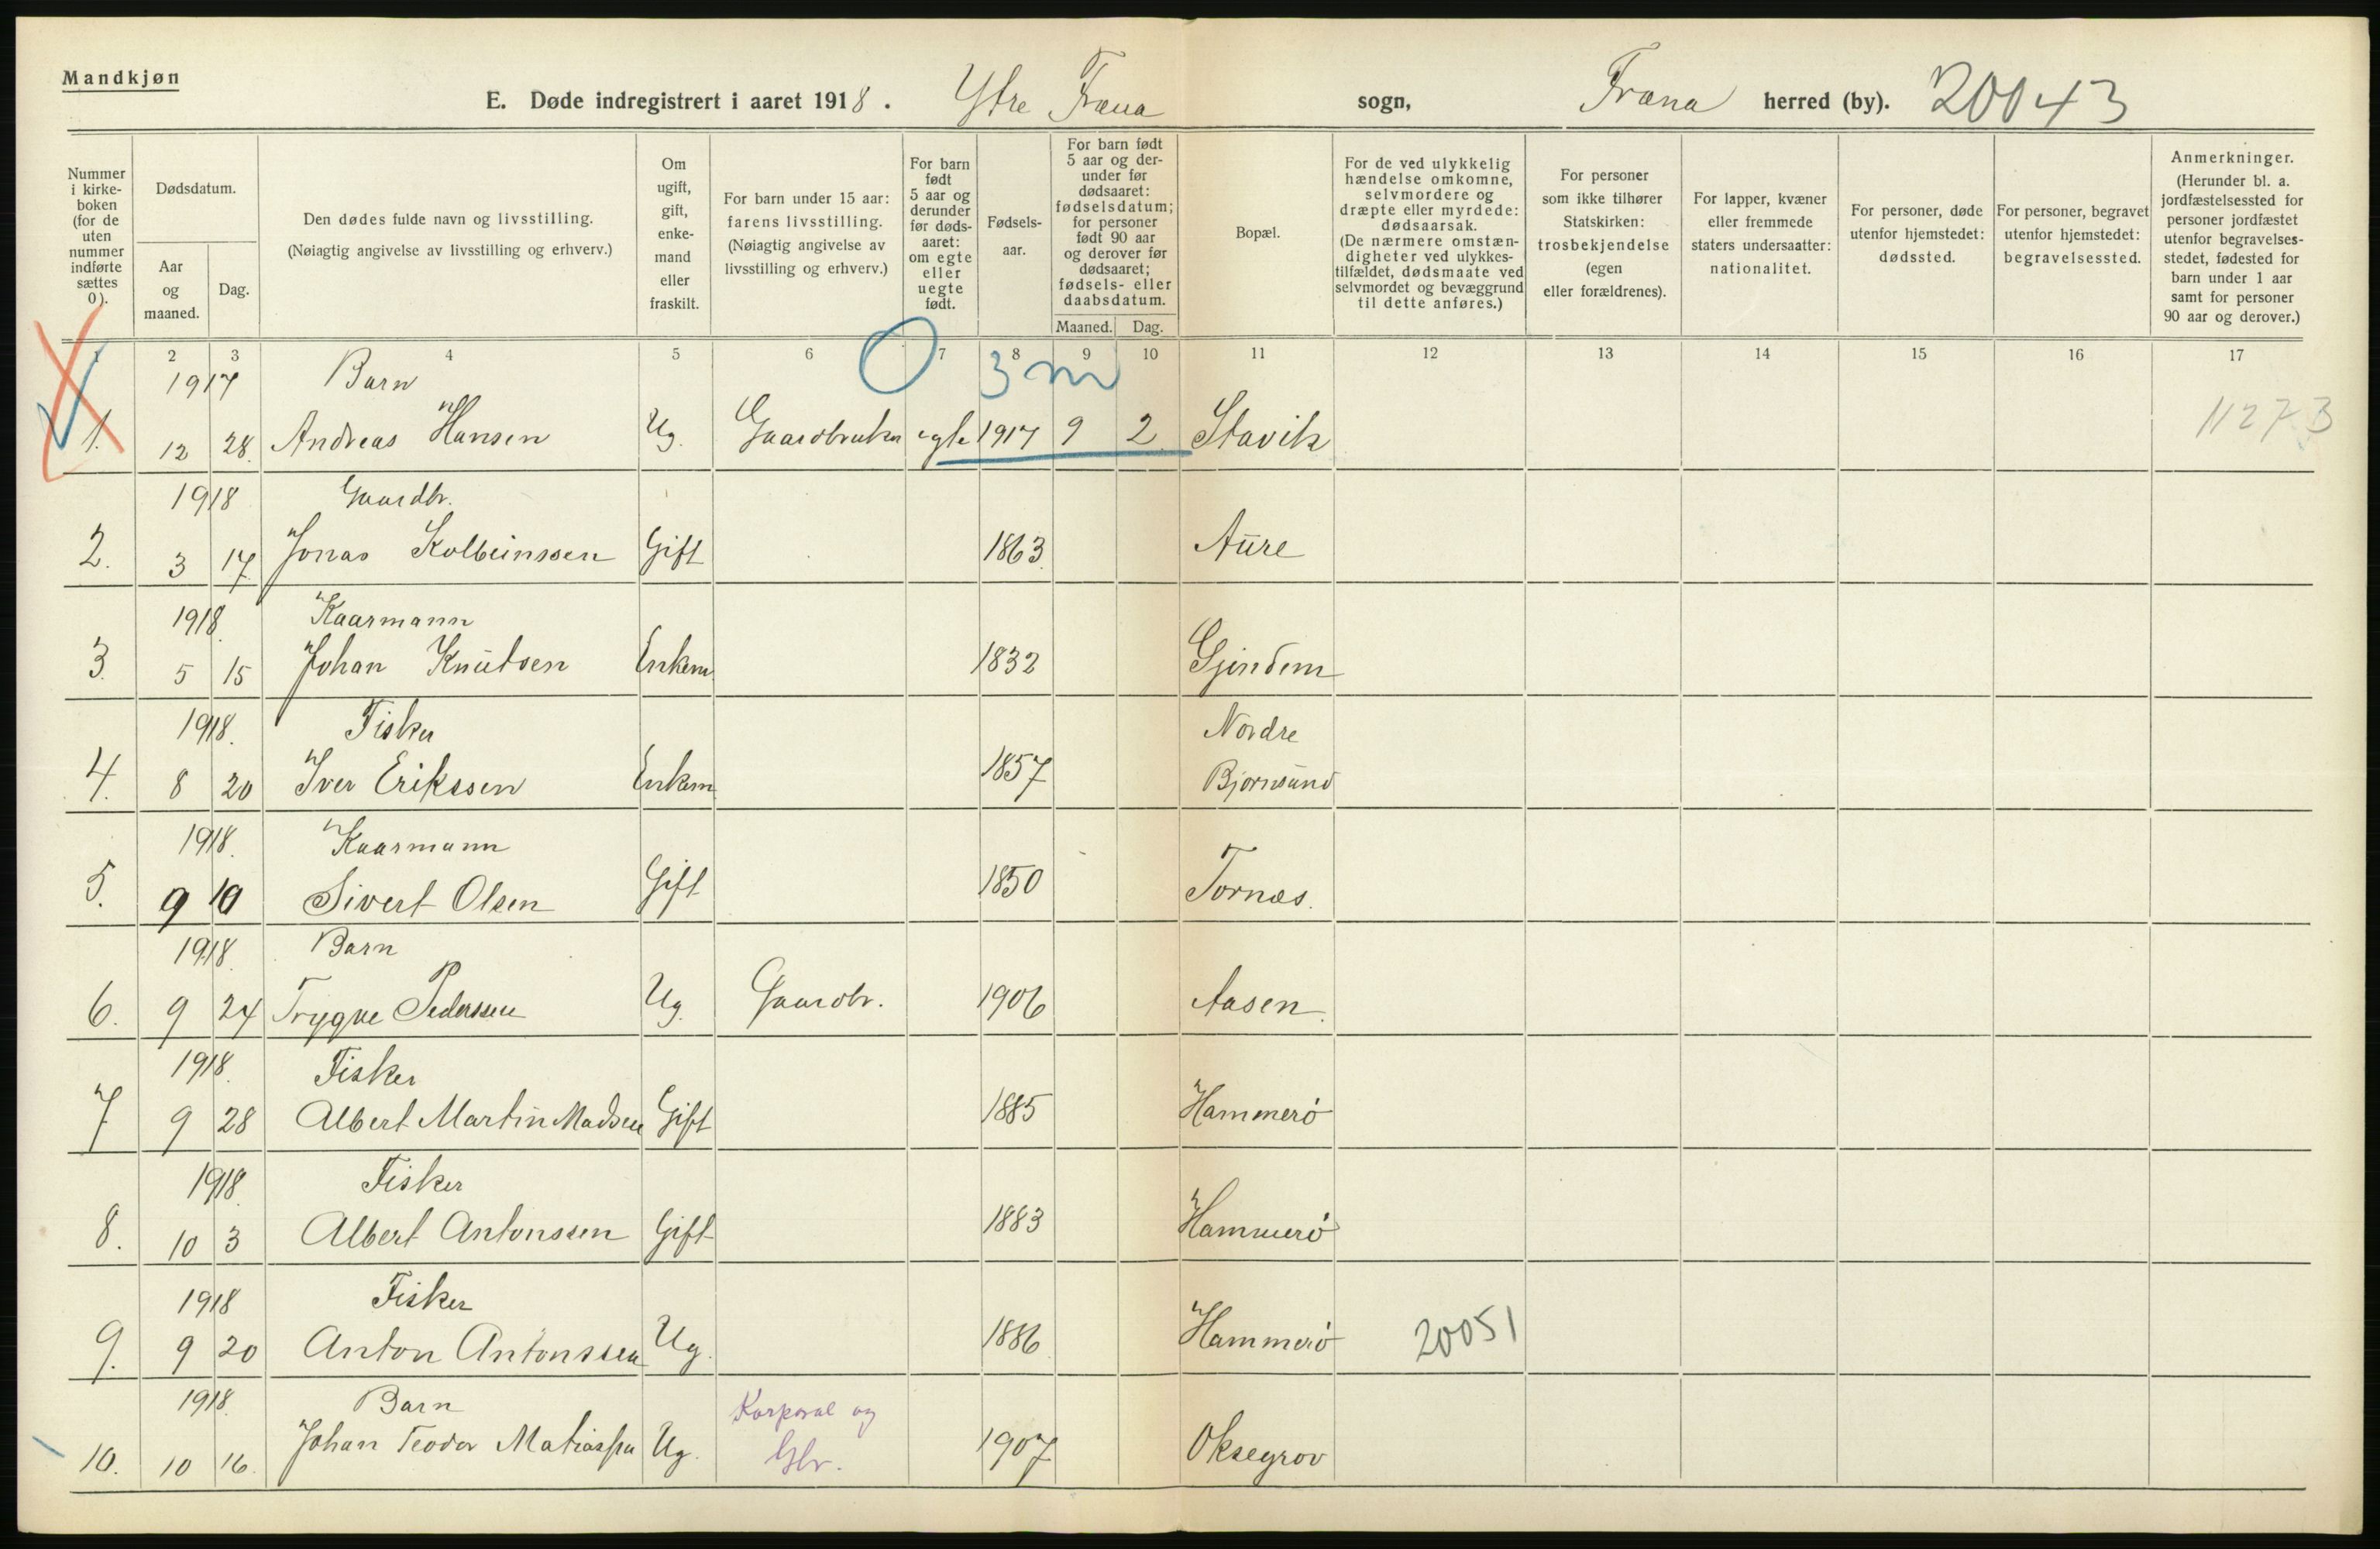 Mandkjøn
E. Døde indregistrert i aaret 1918. Ytre Fræna sogn, Fræna herred (by). 20043
Nummer i kirke-boken (for de uten nummer indførte sættes 0).
Dødsdatum.
Aar og maaned.
Dag.
Den dødes fulde navn og livsstilling.
(Nøiagtig angivelse av livsstilling og erhverv.)
Om ugift, gift, enke-mand eller fraskilt.
For barn under 15 aar: farens livsstilling.
(Nøiagtig angivelse av livsstilling og erhverv.)
For barn født 5 aar og derunder før døds-aaret: om egte eller uegte født.
Fødsels-aar.
For barn født 5 aar og der-under før dødsaaret: fødselsdatum; for personer født 90 aar og derover før dødsaaret; fødsels- eller daabsdatum.
Maaned. Dag.
Bopæl.
For de ved ulykkelig hændelse omkomne, selvmordere og dræpte eller myrdede: dødsaarsak.
(De nærmere omstæn-digheter ved ulykkes-tilfældet, dødsmaate ved selvmordet og bevæggrund til dette anføres.)
For personer som ikke tilhører Statskirken: trosbekjendelse (egen eller forældrenes).
For lapper, kvæner eller fremmede staters undersaatter: nationalitet.
For personer, døde utenfor hjemstedet: dødssted.
For personer, begravet utenfor hjemstedet: begravelsessted.
Anmerkninger.
(Herunder bl. a. jordfæstelsessted for personer jordfæstet utenfor begravelses-stedet, fødested for barn under 1 aar samt for personer 90 aar og derover.)
1 2 3 4 5 6 7 8 9 10 11 12 13 14 15 16 17
1917 Barn 0 3 m
1. 12 28. Andreas Hansen Ug. Gaardbruker egte 1917 9 2 Stavik 11273
1918 Gaardbr.
2. 3 17. Jonas Kolbeinssen Gift 1863. Aure
1918. Kaarmann
3. 5 15 Johan Knutsen Enkem. 1832 Gjendem
1918. Fisker Nordre
4. 8 20 Iver Erikssen Enkem. 1857 Bjornsund
1918. Kaarmann
5. 9 10 Sivert Olsen Gift 1850 Tornes.
1918. Barn
6. 9 24 Trygve Pederssen Ug. Gaardbr. 1906 Aasen.
1918. Fisker
7 9 28 Albert Martin Madsen Gift 1885 Hammerö
1918. Fisker
8. 10 3 Albert Antonssen Gift 1883 Hammerö
1918 Fisker
9. 9 20 Anton Antonssen Ug. 1886 Hammerö 20051
1918. Barn Korporal og
10. 10 16. Johan Teodor Matiassen Ug. Gbr. 1907 Oksegrov